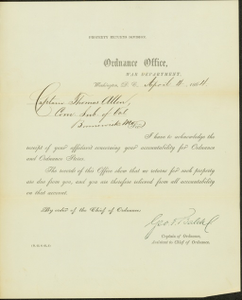 Ordnance Office,
WAR DEPARTMENT,
Washington, D. C., April
Captain Thomas Allen
Com. Sub. of Vol.
Brunswick Me
I have to acknowledge the
receipt of your affidavit concerning your accountability for Ordnance
and Ordnance Stores.
The records of this Office show that no returns for such property
are due from you, and you are therefore relieved from all accountability
on that account.
By order of the Chief of Ordnance.
Geo. T.
Captain of Ordnance,
Assistant to Chief of Ordnance.